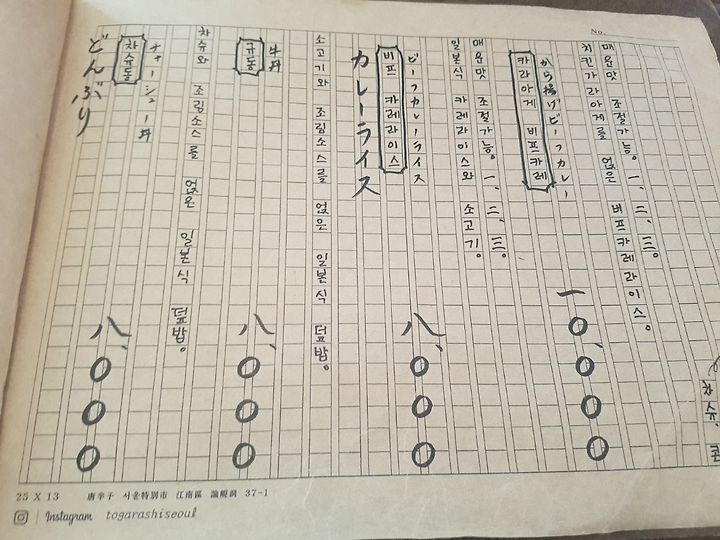 No.
どんぶり
차슈동
チャーシュー丼
차슈와 조림소스를 얹은 일본식 덮밥。
八、000
규동
牛丼
소고기와 조림소스를 얹은 일본식 덮밥。
八、000
カレーライス
비프 카레라이스
ビーフカレーライス
일본식 카레라이스와 소고기。
매운맛 조절가능。一、二、三。
八、000
카라아게 비프카레
から揚げビーフカレー
치킨가라아게를 얹은 비프카레라이스。
매운맛 조절가능。一、二、三。
一0、000
차슈、콘
25 X 13 唐辛子 서울特別市 江南區 論峴洞 37-1
Instagram togarashiseoul